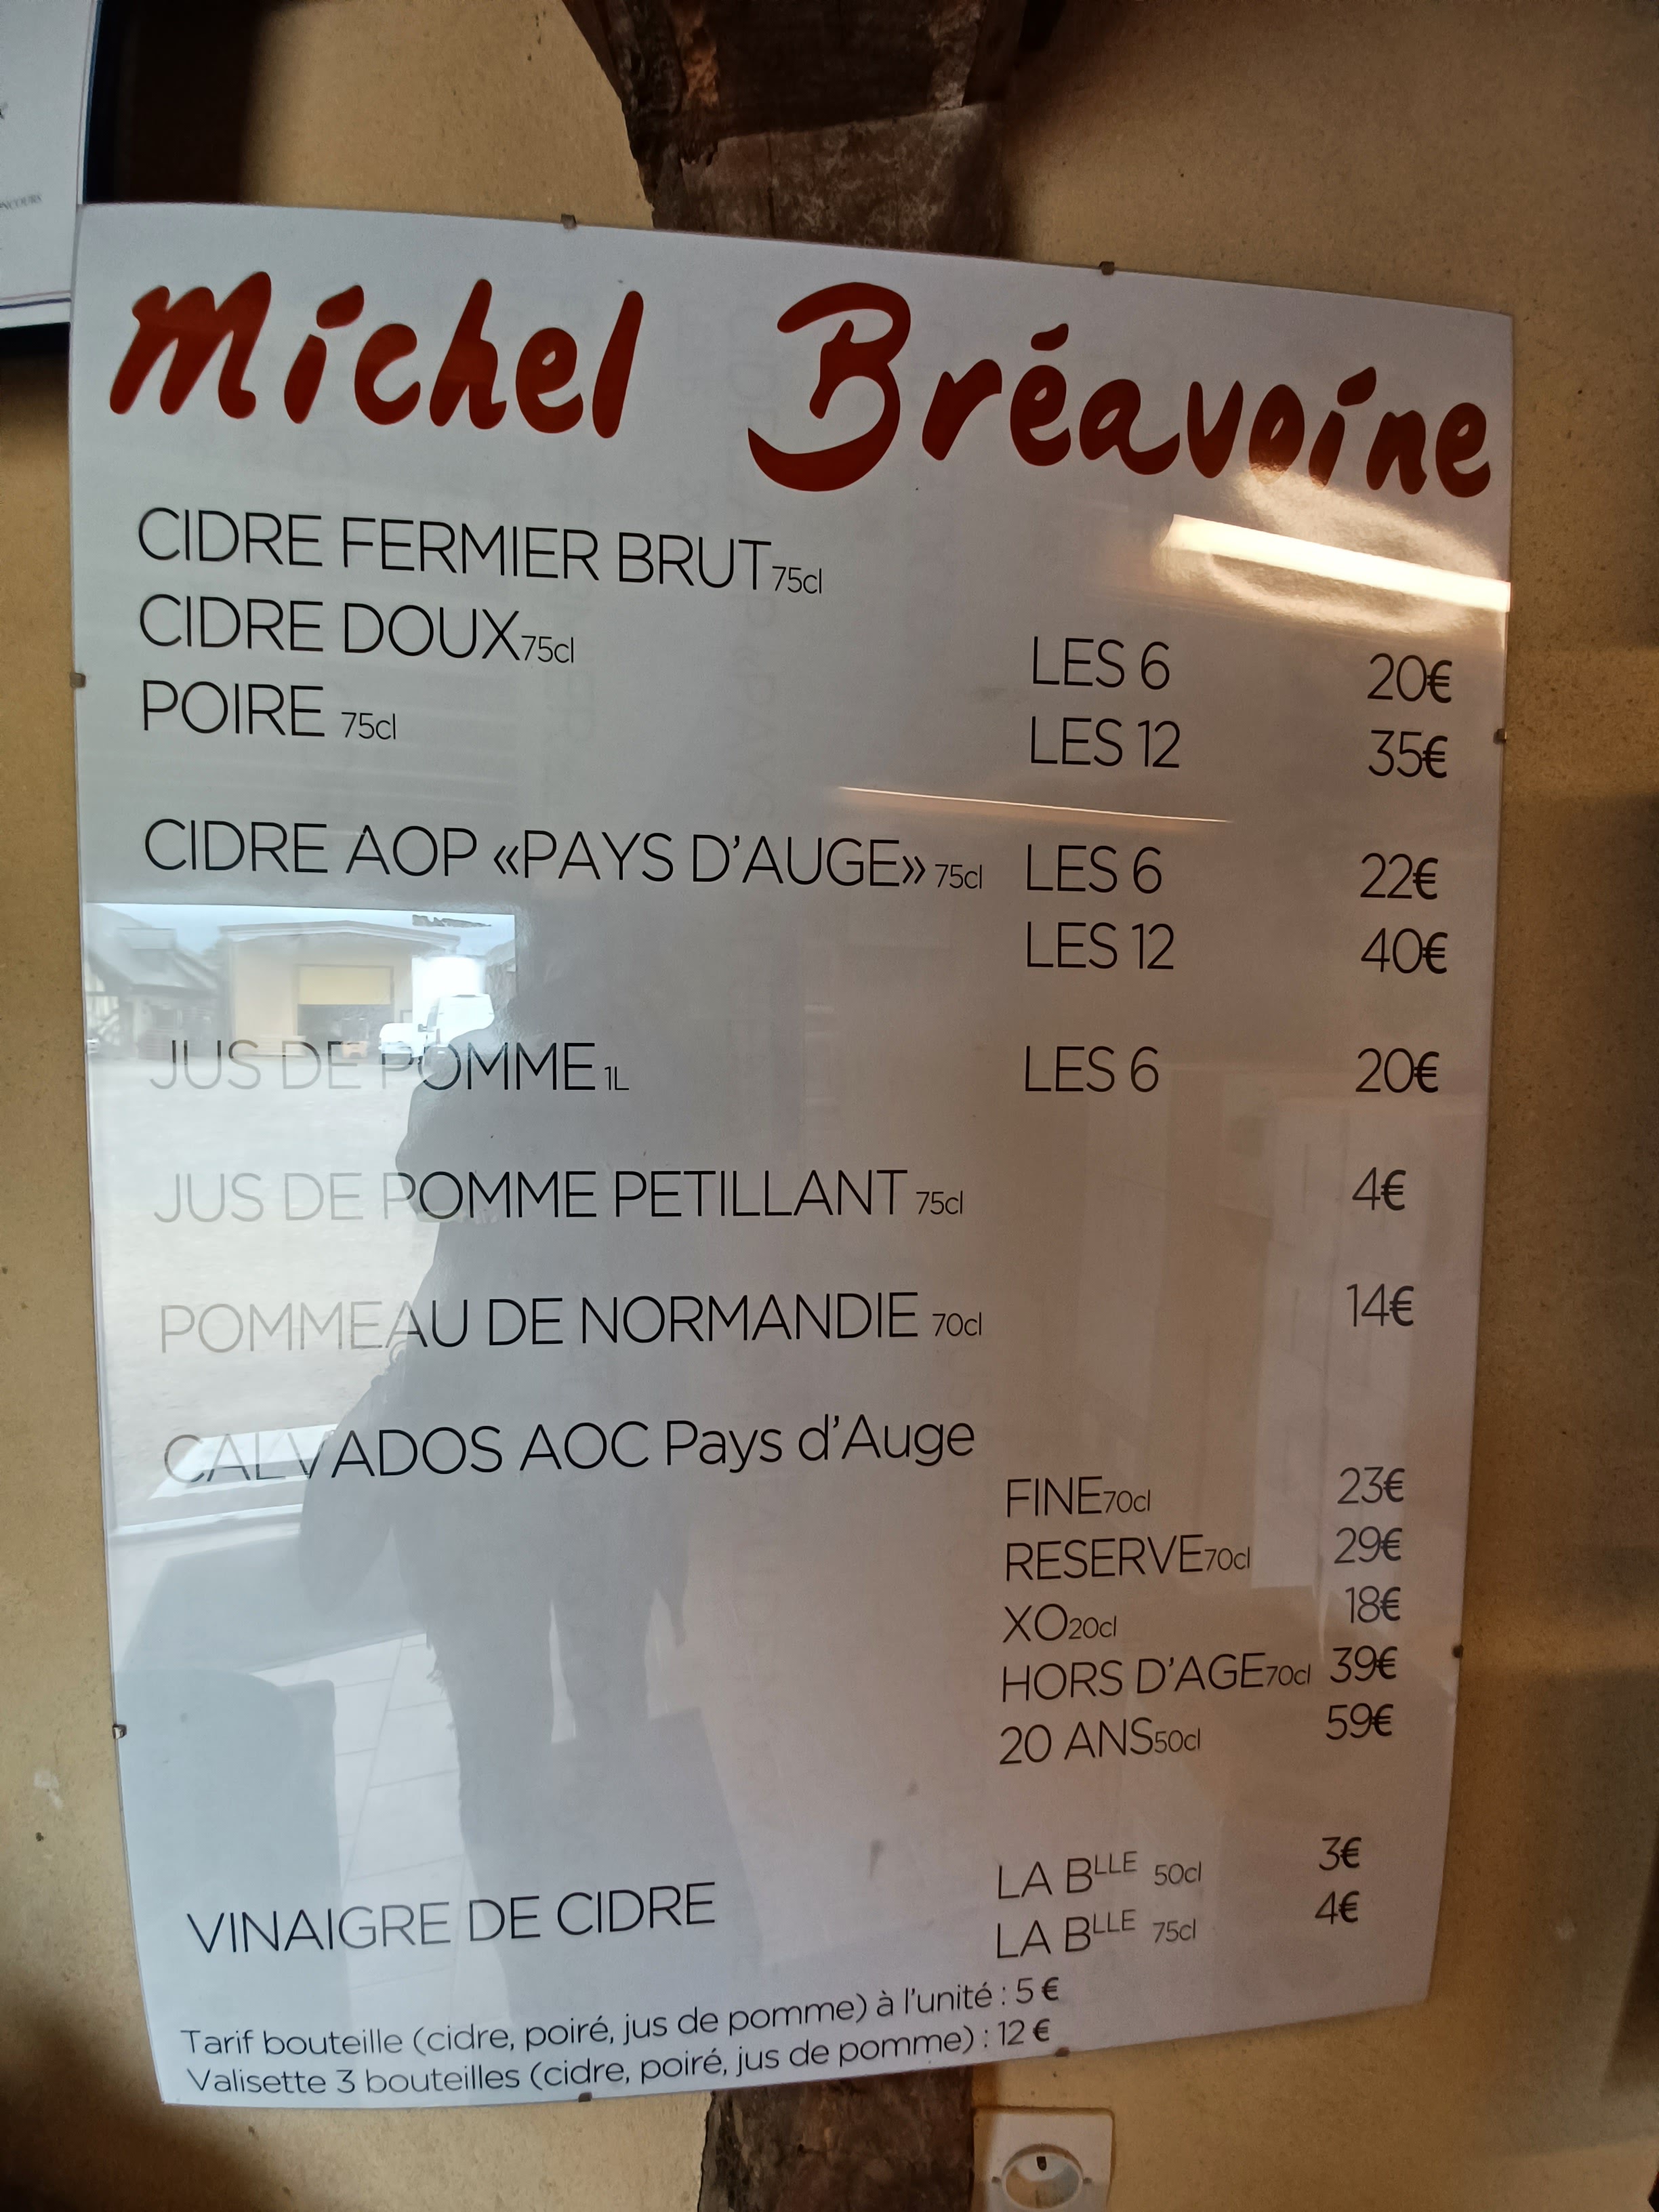 NCOURS
Michel Bréavoine
CIDRE FERMIER BRUT 75cl
CIDRE DOUX 75cl
POIRE 75cl
LES 6 20€
LES 12 35€
CIDRE AOP «PAYS D'AUGE» 75cl LES 6 22€
LES 12 40€
JUS DE POMME 1L LES 6 20€
JUS DE POMME PETILLANT 75cl 4€
POMMEAU DE NORMANDIE 70cl 14€
CALVADOS AOC Pays d'Auge
FINE 70cl 23€
RESERVE 70cl 29€
XO 20cl 18€
HORS D'AGE 70cl 39€
20 ANS 50cl 59€
VINAIGRE DE CIDRE
LA BLLE 50cl 3€
LA BLLE 75cl 4€
Tarif bouteille (cidre, poiré, jus de pomme) à l'unité : 5 €
Valisette 3 bouteilles (cidre, poiré, jus de pomme) : 12 €